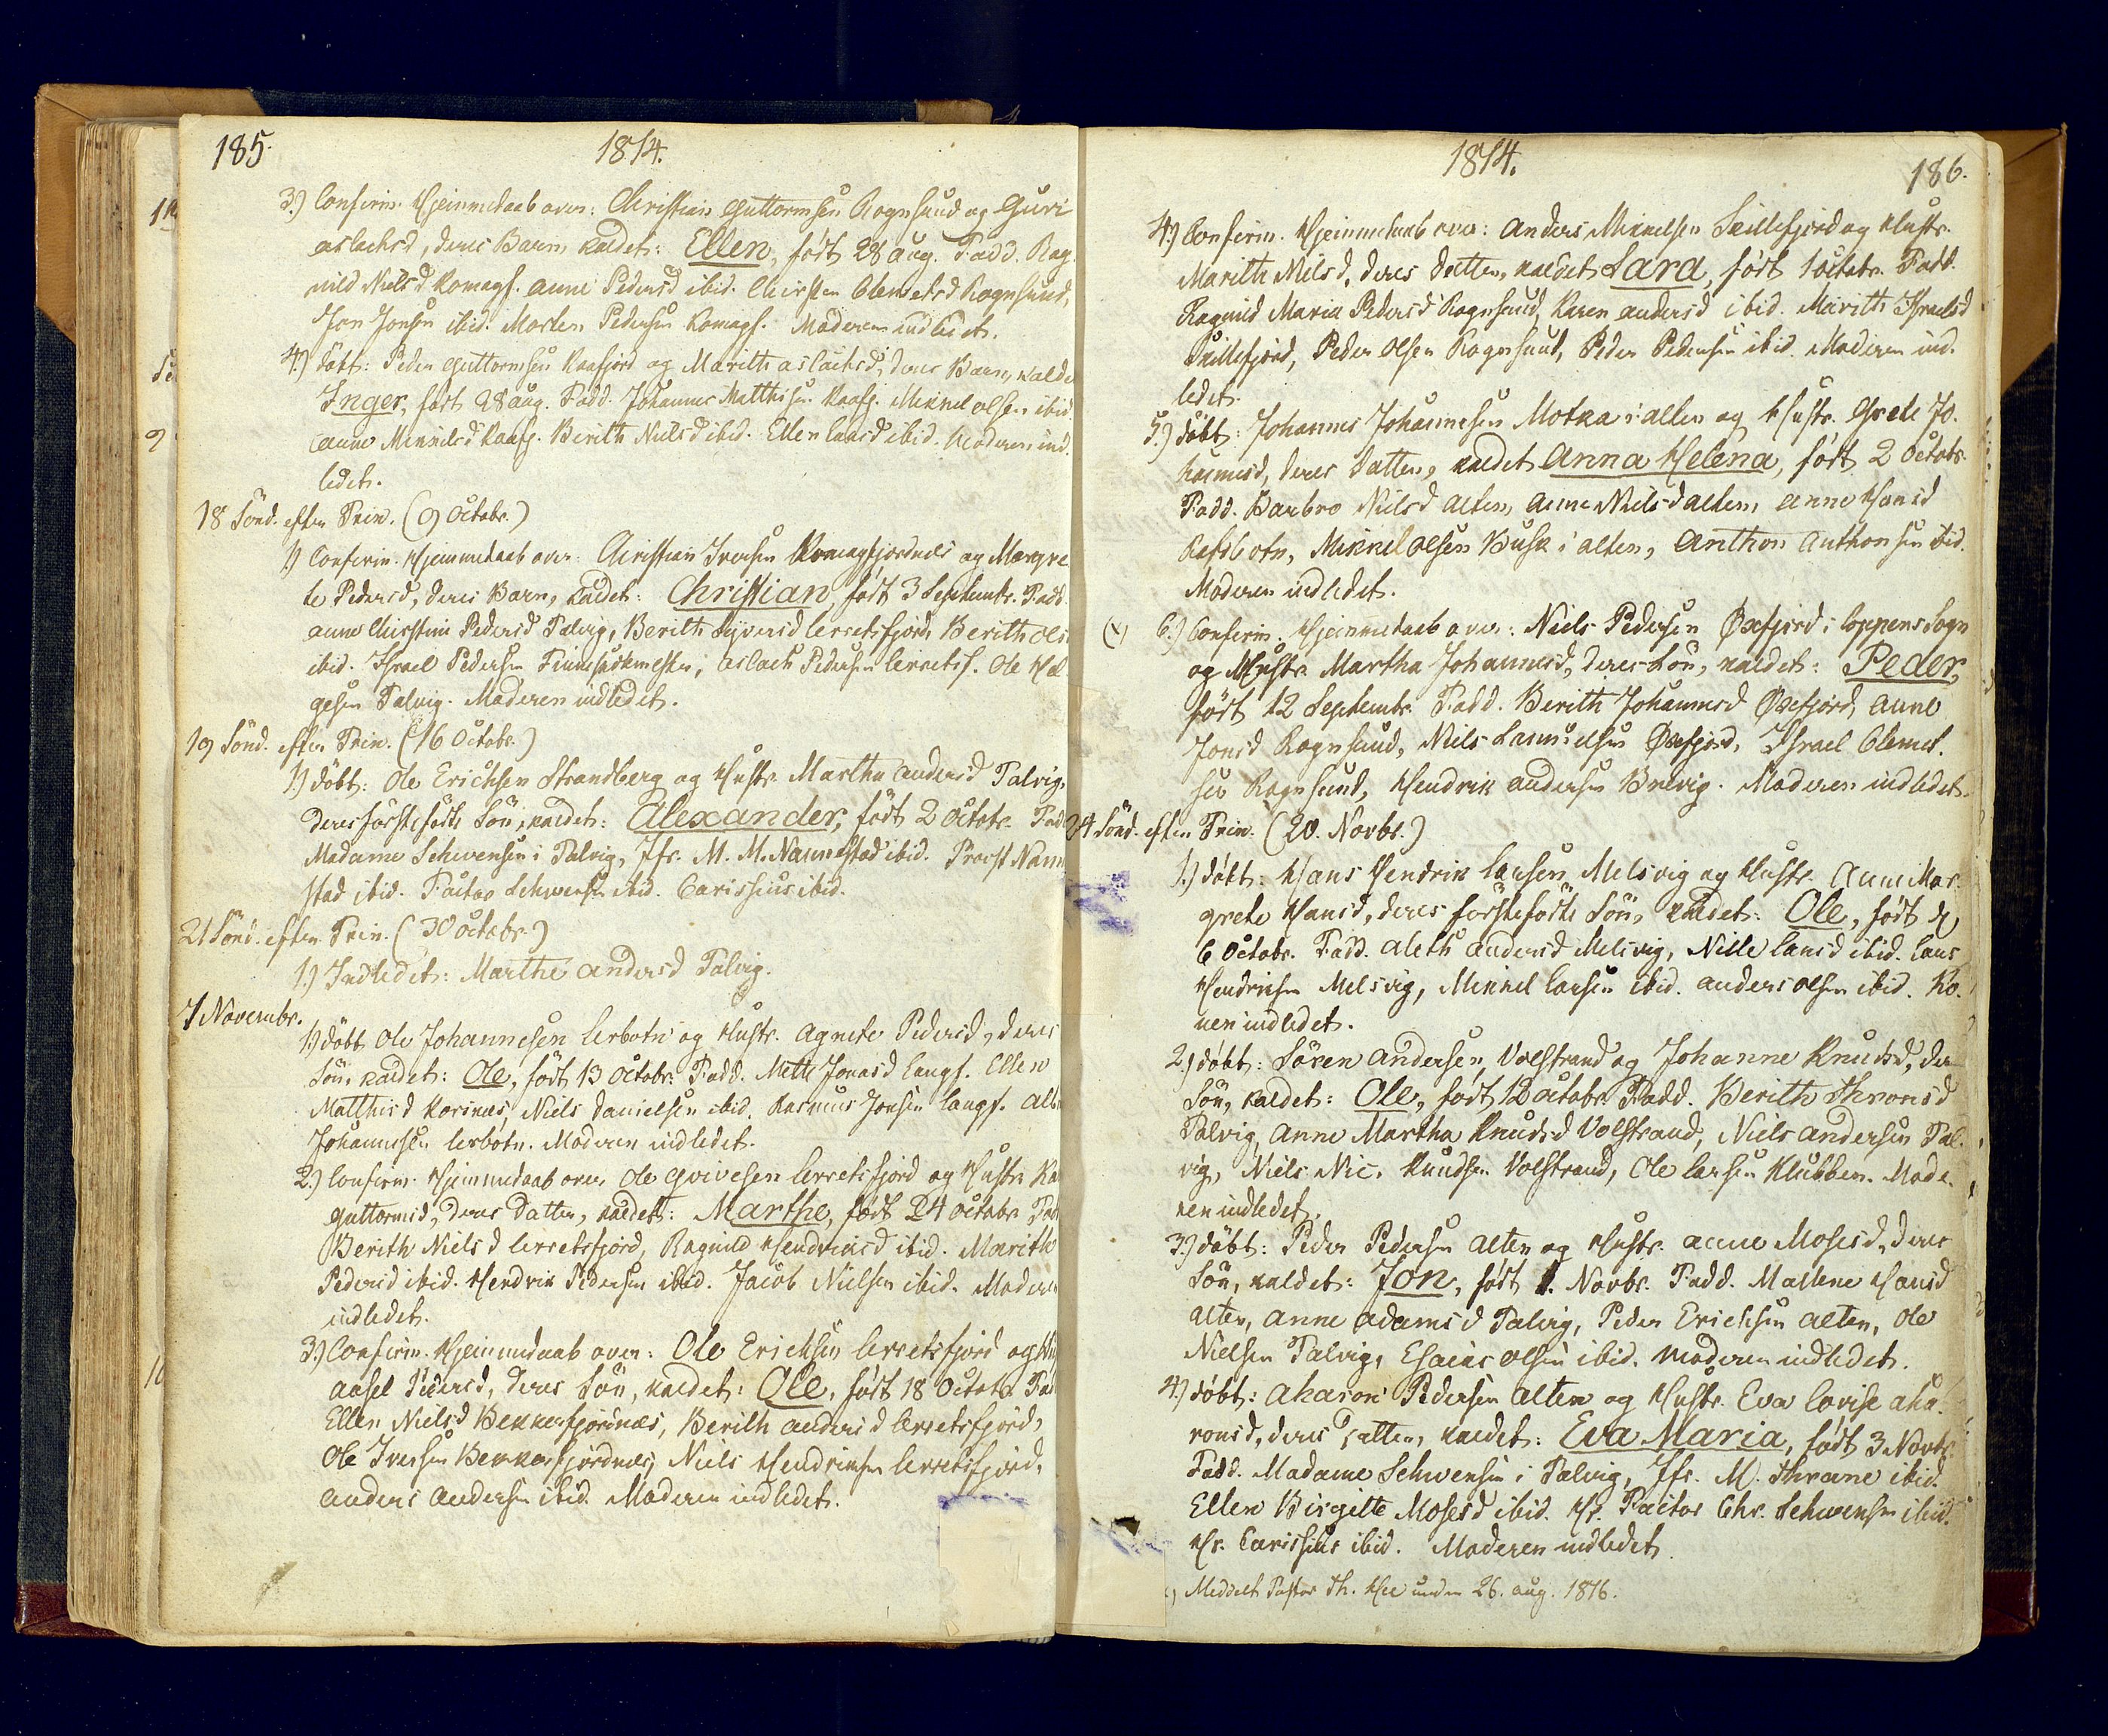 185.
1814.
3.) Confirm. Hjemmedaab over: Christian Guttormsen Rognsund og Guri
Aslachsd, deres Barn, kaldet: Ellen, født 28 Aug. Fadd. Rag-
nild Nielsd Komagf. Anne Pedersd ibid. Chirsten Clemetsd Rognsund,
Jon Jonsen ibid. Morten Pedersen Komagf. Moderen indledet.
4.) Døbt: Peder Guttormsen Kaafjord og Marith Aslachsd, deres Barn, kalde
Inger, født 28 Aug. Fadd. Johannes Matthisen Kaafj. Mikkel Olsen ibid
Anne Mikkelsd Kaafj. Berith Nielsd ibid. Ellen Larsd ibid. Moderen ind-
ledet.
18 Sønd. efter Trin. (9 Octobr.)
1.) Confirm. Hjemmedaab over: Christian Iversen Komagfjordnæs og Margre
te Pedersd, deres Barn, kaldet: Christian, født 3 Septembr. Fadd.
Anne Chirstine Pedersd Talvig, Berith Syversd Lerretsfjord, Berith Ols
ibid. Israel Pedersen, Aslach Pedersen Lerretsf. Ole Hel-
gesen Talvig. Moderen indledet.
19 Sønd. efter Trin. (16 Octobr.)
1.) Døbt: Ole Erichsen Strandberg og Hustr. Martha Andersd Talvig,
deres førstefødte Søn, kaldet: Alexander, født 2 Octobr. Fad
Madame Schwensen i Talvig, Jfr. M. M. Nannestad ibid. Provst Nann
stad ibid. Factor Schwensen ibid. Carissius ibid.
21 Sønd. efter Trin. (30 Octobr.)
1.) Indledet: Marthe Andersd Talvig.
7 Novembr.
1.) Døbt Ole Johannesen Lerbotn og Hustr. Agnete Pedersd, deres
Søn, kaldet: Ole, født 13 Octobr. Fadd. Mette Jonasd Langf. Ellen
Matthisd Korsnæs, Niels Danielsen ibid. Rasmus Jonsen Langf.
Johannesen Lerbotn. Moderen indledet.
2.) Confirm. Hjemmedaab over Ole Lerretsfjord og Hustr. Ka
Guttormsd, deres Datter, kaldet: Marthe, født 24 Octobr. Fad
Berith Nielsd Lerretsfjord, Ragnild Hendriksd ibid. Marith
Pedersd ibid. Hendrik Pedersen ibid. Jacob Nielsen ibid. Modere
indledet.
3.) Confirm. Hjemmedaab over: Ole Erichsen Lerretsfjord og Hu
Aasel Pedersd, deres Søn, kaldet: Ole, født 18 Octobr. Fad
Ellen Nielsd Bekkerfjordnæs, Berith Andersd Lerretsfjord,
Ole Iversen Bekkerfjordnæs, Niels Hendriksen Lerretsfjord,
Anders Andersen ibid. Moderen indledet.
1814.
186.
4.) Confirm. Hjemmedaab over: Anders Mikkelsen Skillefjord og Hustr.
Marith Nilsd, deres Datter, kaldet Sara, født 1 Octobr. Fadd.
Ragnild Maria Pedersd Rognsund, Karen Andersd ibid. Marith Israelsd
Skillefjord, Peder Olsen Rognsund, Peder Pedersen ibid. Moderen ind-
ledet.
5.) Døbt: Johannes Johannesen Motka i Alten og Hustr. Grete Jo-
hannesd, deres Datter, kaldet Anna Helena, født 2 Octobr.
Fadd. Barbro Nielsd Alten, Anne Nielsd Alten, Anne Hansd
Rafsbotn, Mikkel Olsen Busk i Alten, Anthon Anthonsen ibid.
Moderen indledet.
(x) 6.) Confirm. Hjemmedaab over: Niels Pedersen Øxfjord i Loppens Sogn
og Hustr. Martha Johannesd, deres Søn, kaldet: Peder,
født 12 Septembr. Fadd. Berith Johannesd Øxfjord, Anne
Jonsd Rognsund, Nils Samuelsen Øxfjord, Israel Clemet-
sen Rognsund, Hendrik Andersen Brevig. Moderen indledet.
24 Sønd. efter Trin. (20. Novbr.)
1.) Døbt: Hans Hendrik Larsen Melsvig og Hustr. Anne Mar-
grete Hansd, deres førstefødte Søn, kaldet: Ole, født d
6 Octobr. Fadd. Aleth Andersd Melsvig, Nille Larsd ibid. Lars
Hendriksen Melsvig, Mikkel Larsen ibid. Anders Olsen ibid. Ko-
nen indledet.
2.) Døbt: Søren Andersen Volstrand og Johanne Knudsd, der
Søn, kaldet: Ole, født 12 Octobr. Fadd. Berith Thronsd
Talvig, Anne Martha Knudsd Volstrand, Niels Andersen Tal-
vig, Niels Nic. Knudsen Volstrand, Ole Larsen Klubben. Mode-
ren indledet.
3.) Døbt: Peder Pedersen Alten og Hustr. Anne Mosesd, deres
Søn, kaldet: Jon, født 1. Novbr. Fadd. Mallene Hansd
Alten, Anne Adamsd Talvig, Peder Erichsen Alten, Ole
Nielsen Talvig, Esaias Olsen ibid. Moderen indledet.
4.) Døbt: Aharon Pedersen Alten og Hustr. Eva Lovise Aha-
ronsd, deres Datter, kaldet: Eva Maria, født 3 Novbr.
Fadd. Madame Schwensen i Talvig, Jfr. M. Thrane ibid.
Ellen Birgitte Mosesd ibid. Hr. Factor Chr. Schwensen ibid.
Hr. Carissius ibid. Moderen indledet.
x) Meddelt Pastor Th. under 26. Aug. 1816.